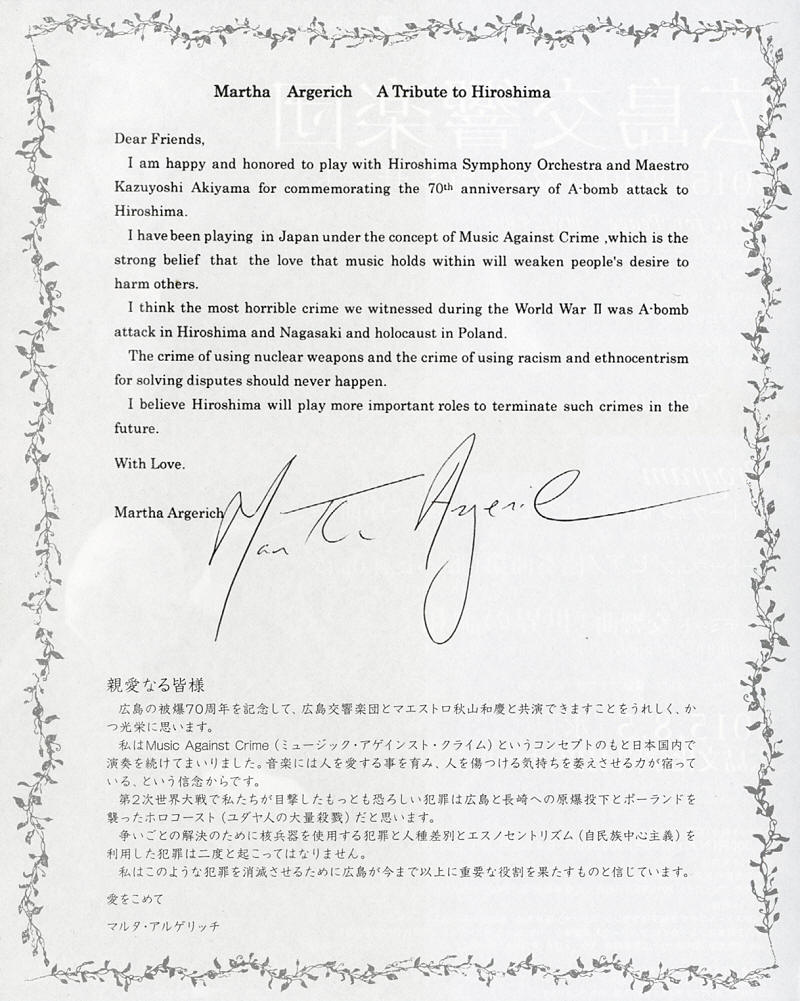 Martha Argerich A Tribute to Hiroshima
Dear Friends,
I am happy and honored to play with Hiroshima Symphony Orchestra and Maestro
Kazuyoshi Akiyama for commemorating the 70th anniversary of A-bomb attack to
Hiroshima.
I have been playing in Japan under the concept of Music Against Crime ,which is the
strong belief that the love that music holds within will weaken people's desire to
harm others.
I think the most horrible crime we witnessed during the World War Ⅱ was A-bomb
attack in Hiroshima and Nagasaki and holocaust in Poland.
The crime of using nuclear weapons and the crime of using racism and ethnocentrism
for solving disputes should never happen.
I believe Hiroshima will play more important roles to terminate such crimes in the
future.
With Love.
Martha Argerich Martha Argerich
親愛なる皆様
広島の被爆70周年を記念して、広島交響楽団とマエストロ秋山和慶と共演できますことをうれしく、か
つ光栄に思います。
私はMusic Against Crime（ミュージック・アゲインスト・クライム）というコンセプトのもと日本国内で
演奏を続けてまいりました。音楽には人を愛する事を育み、人を傷つける気持ちを萎えさせる力が宿って
いる、という信念からです。
第2次世界大戦で私たちが目撃したもっとも恐ろしい犯罪は広島と長崎への原爆投下とポーランドを
襲ったホロコースト（ユダヤ人の大量殺戮）だと思います。
争いごとの解決のために核兵器を使用する犯罪と人種差別とエスノセントリズム（自民族中心主義）を
利用した犯罪は二度と起こってはなりません。
私はこのような犯罪を消滅させるために広島が今まで以上に重要な役割を果たすものと信じています。
愛をこめて
マルタ・アルゲリッチ